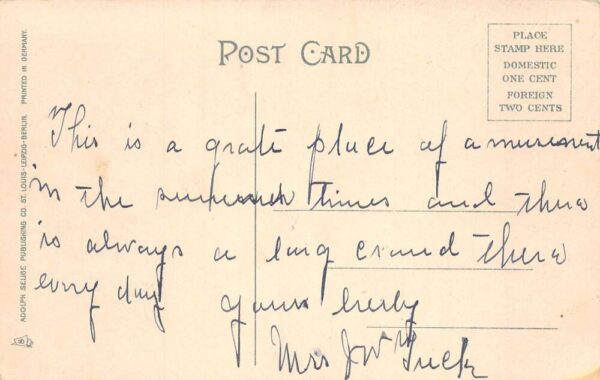 POST CARD
PLACE
STAMP HERE
DOMESTIC
ONE CENT
FOREIGN
TWO CENTS
ADOLPH SELIGE PUBLISHING CO. ST. LOUIS-LEIPZIG-BERLIN. PRINTED IN GERMANY.
This is a grate place of amusement
in the times and there
is always a larg croud there
every day yours
Mrs J W Tuck